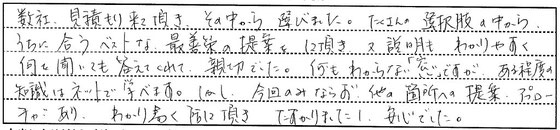 数社、見積もり来て頂き、その中から選びました。たくさんの選択肢の中から、
うちに合うベストな、最善策の提案をして頂き、又説明もわかりやすく
何を聞いても答えてくれて、親切でした。何もわからない「窓」ですが、ある程度の
知識はネットで学べます。しかし、今回のみならず、他の箇所への提案、アプロー
チがあり、わかり易く話して頂きたすかりましたし、安心でした。